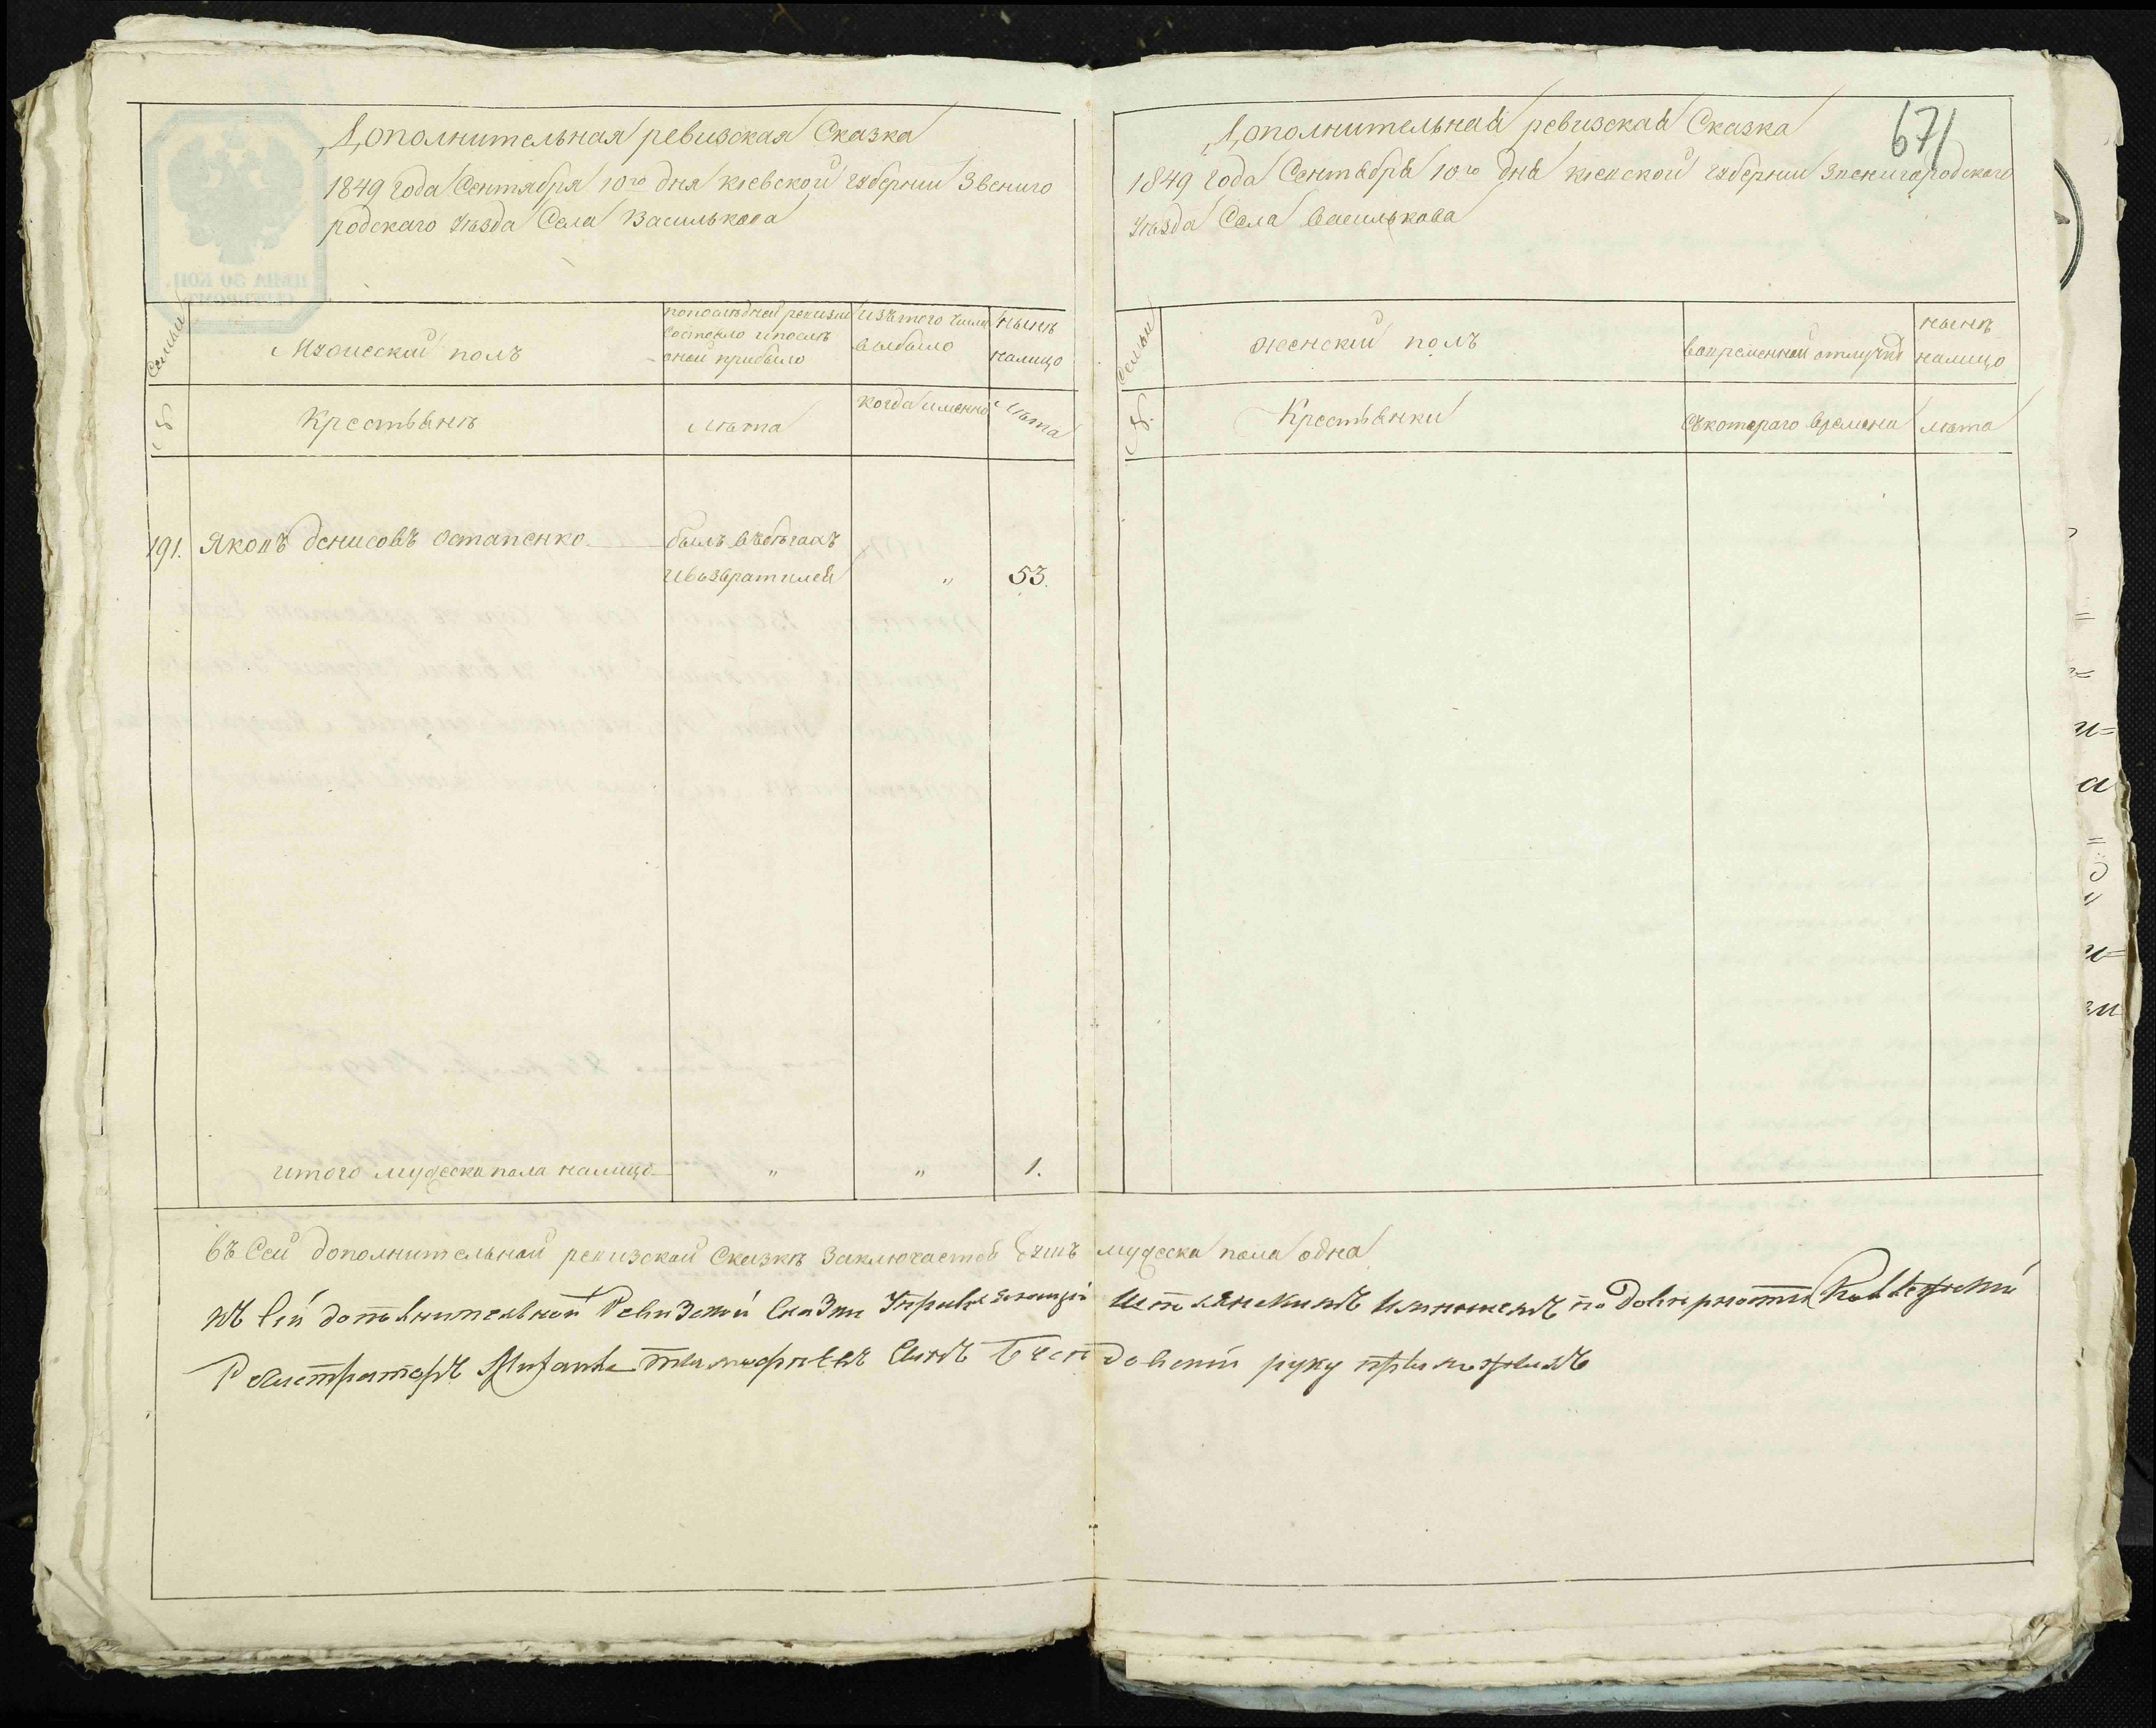 Дополнительная ревизская Сказка
1849 года Сентября 10го дня киевской губернии Звениго
родскаго уѣзда Села Василькова
Семьи
Мужеской полъ
по последней ревизии
состояло и послѣ
оной прибыло
изътого числа
выбыло
нынѣ
налицо
№
Крестьянѣ
лѣта
когда именно
лѣта
191. Яковъ денисовъ остапенко
былъ вбѣгахъ
ивозвратился " 53.
итого мужеска пола налицо " " 1.
Дополнительная ревизская Сказка
671
1849 года Сентября 10го дня киевской губернии Звенигородскаго
уѣзда Села василькова
семьи
женский полъ
вовременной отлучке
нынѣ
налицо
№.
Крестьянки
съкотораго времени
лѣта
въ Сей дополнительной ревизской Сказкѣ Заключается душъ мужеска пола одна
къ сей дополнительной Ревизской Сказки Управляющий имениемъ по доверености Коллежский
Регистраторъ сынъ руку приложилъ
ЦѢНА 30 КОП.
СЕРЕБРОМЪ